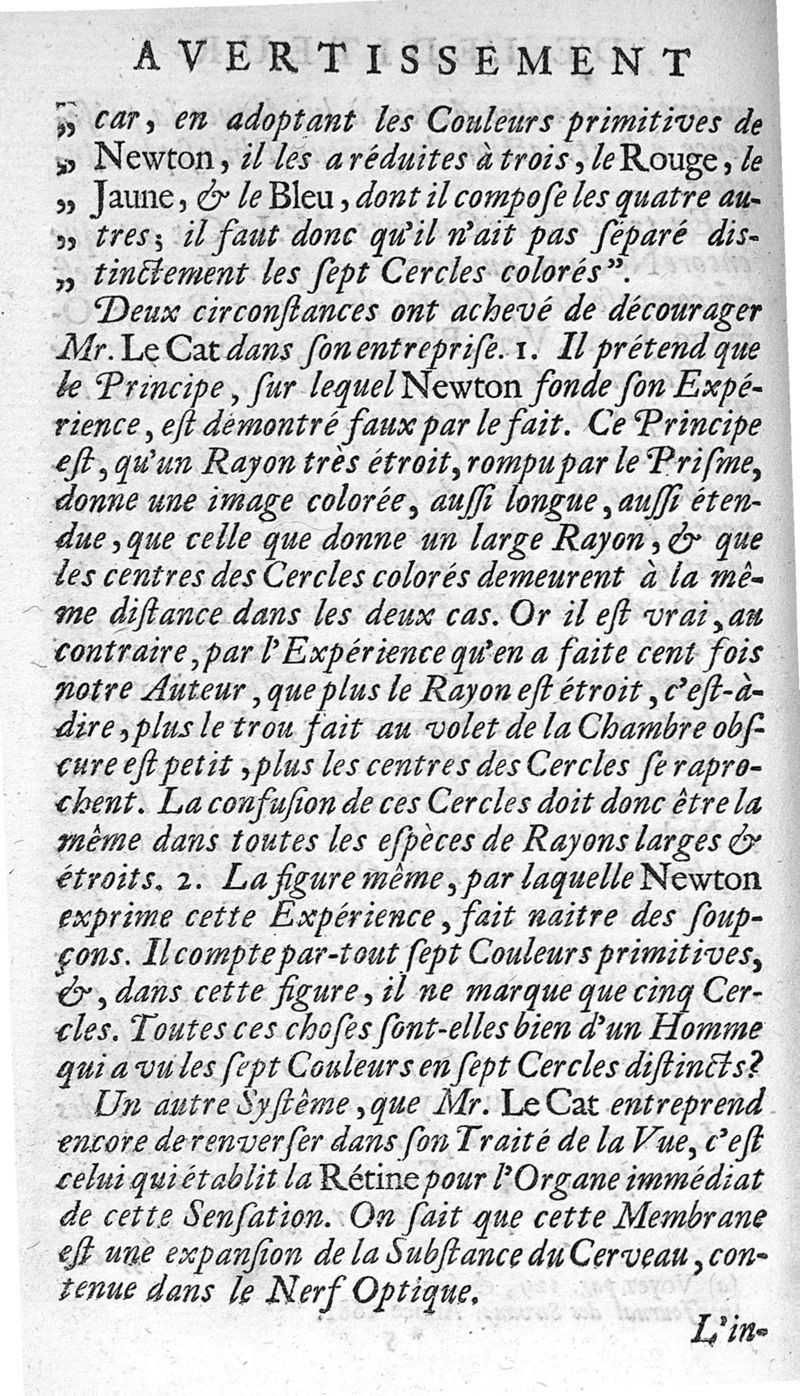 AVERTISSEMENT
„ car, en adoptant les Couleurs primitives de
„ Newton, il les a réduites à trois, le Rouge, le
„ Jaune, & le Bleu, dont il compoſe les quatre au-
„ tres; il faut donc qu'il n'ait pas ſéparé dis-
„ tinctement les ſept Cercles colorés”.
Deux circonſtances ont achevé de décourager
Mr. Le Cat dans ſon entrepriſe. 1. Il prétend que
le Principe, ſur lequel Newton fonde ſon Expé-
rience, eſt démontré faux par le fait. Ce Principe
eſt, qu'un Rayon très étroit, rompu par le Priſme,
donne une image colorée, auſſi longue, auſſi éten-
due, que celle que donne un large Rayon, & que
les centres des Cercles colorés demeurent à la mê-
me diſtance dans les deux cas. Or il eſt vrai, au
contraire, par l'Expérience qu'en a faite cent fois
notre Auteur, que plus le Rayon eſt étroit, c'eſt-à-
dire, plus le trou fait au volet de la Chambre obſ-
cure eſt petit, plus les centres des Cercles ſe rapro-
chent. La confuſion de ces Cercles doit donc être la
même dans toutes les eſpèces de Rayons larges &
étroits. 2. La figure même, par laquelle Newton
exprime cette Expérience, fait naitre des ſoup-
çons. Il compte par-tout ſept Couleurs primitives,
&, dans cette figure, il ne marque que cinq Cer-
cles. Toutes ces choſes ſont-elles bien d'un Homme
qui a vu les ſept Couleurs en ſept Cercles diſtincts?
Un autre Syſtême, que Mr. Le Cat entreprend
encore de renverſer dans ſon Traité de la Vue, c'eſt
celui qui établit la Rétine pour l'Organe immédiat
de cette Senſation. On ſait que cette Membrane
eſt une expanſion de la Subſtance du Cerveau, con-
tenue dans le Nerf Optique.
L'in-